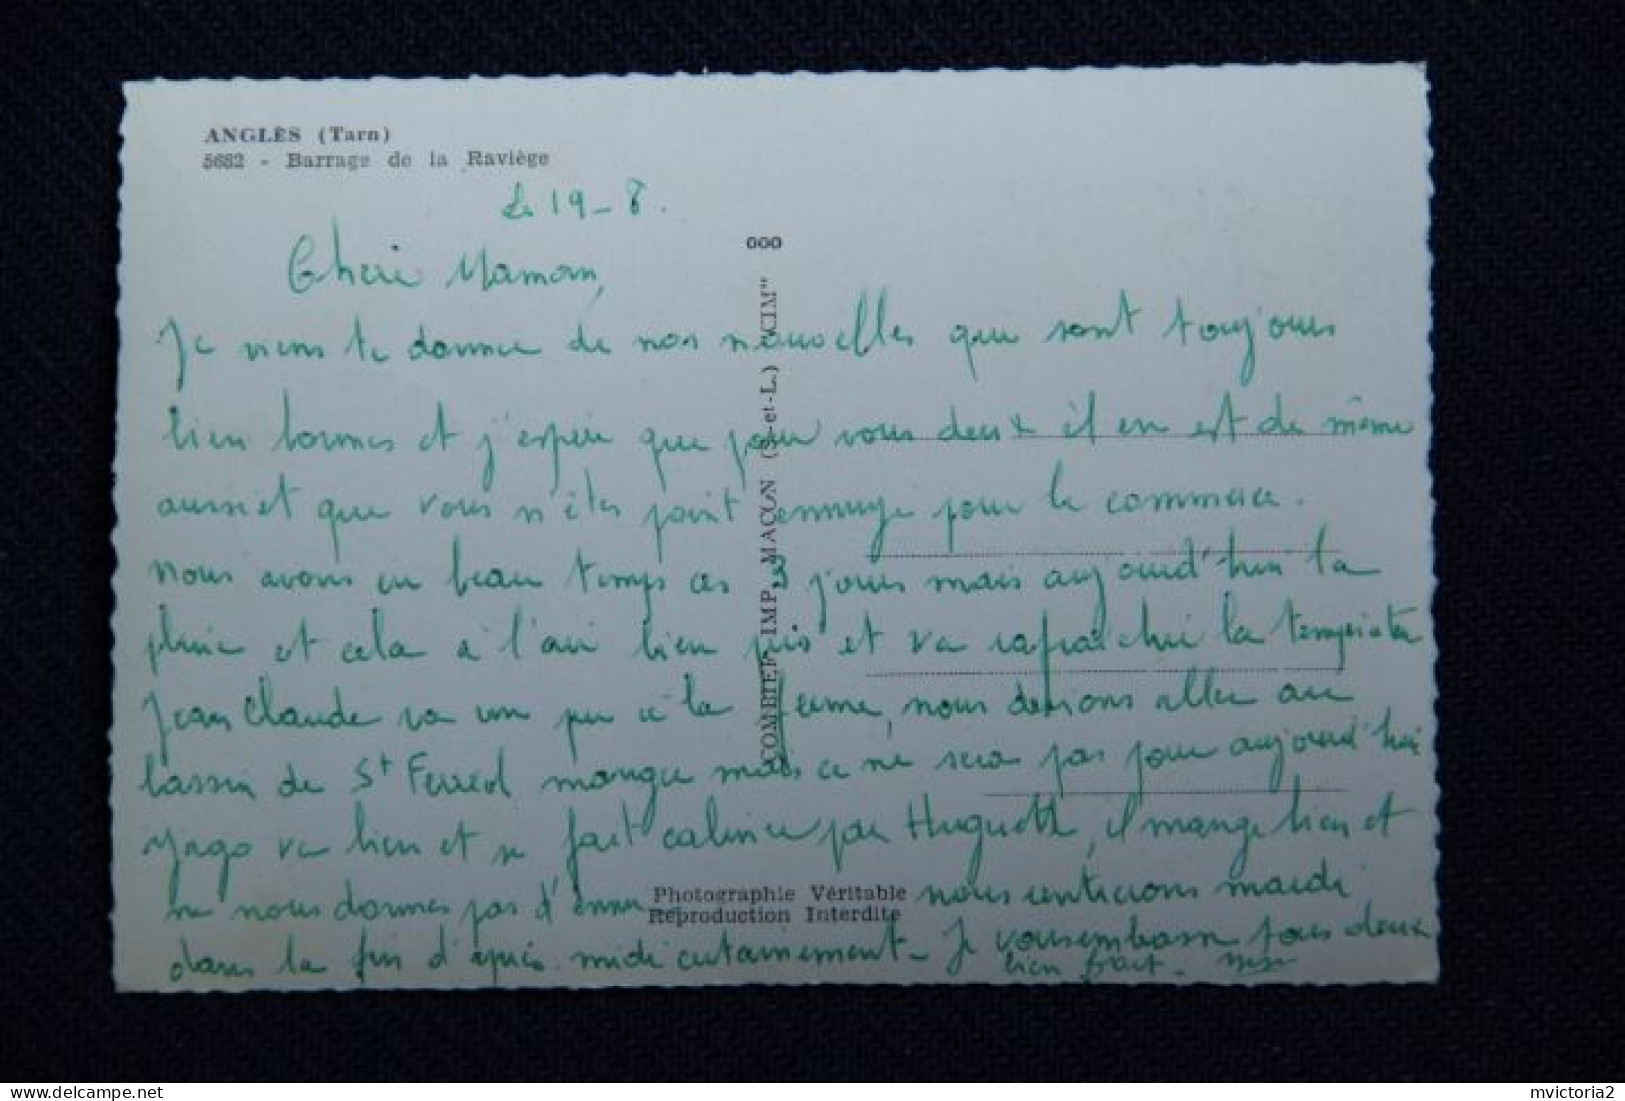 ANGLÈS (Tarn)
5682 - Barrage de la Raviège
Le 19-8.
Cheri Maman,
Je viens te donner de nos nouvelles que sont toujours
bien bonnes et j'espère que pour vous deux il en est de même
aussi et que vous n'êtes point ennuye pour le commerce.
nous avons eu beau temps ces 3 jours mais aujourd'hui la
pluie et cela à l'air bien pris et va rafraîchir la temperatur
Jean Claude va un peu à la ferme, nous devions aller au
bassin de St Ferreol manger mais ce ne sera pas pour aujourd'hui
Yago va bien et se fait caliner par Huguette, il mange bien et
ne nous donnes pas d'ennui nous rentrerons mardi
dans la fin d'après midi certainement - Je vous embrasse tous deux
bien fort -
000
COMBIER IMP. MACON (S-et-L.) "CIM"
Photographie Véritable
Reproduction Interdite
mvictoria2